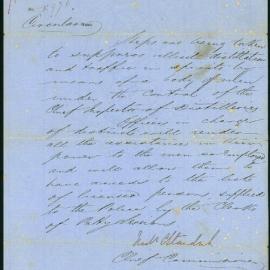 Circular
Steps are being taken
to suppress illicit distillation
and traffic in spirits by
means of a body of men
under the control of the
Chief Inspector of Distilleries
Officers in charge
of districts will render
all the assistance in their
power to the men so employed
and will allow them to
have access to the lists
of licensed persons supplied
to the Police by the Clerks
of Petty Sessions
Chief Commissioner